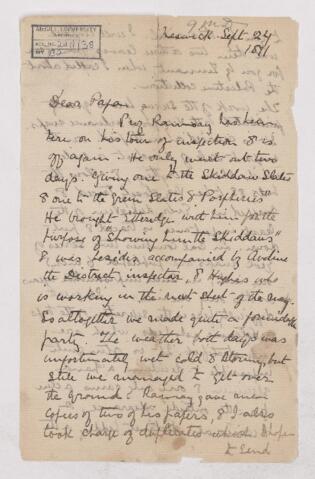 Keswick. Sept. 24
1871
Dear Papa
Prof Ramsay has been
here on his tour of inspection & is
off again. He only went out two
days. Giving one to the Skiddaw Slates
& one to the Green Slates & Porphyries
He brought Etheridge with him for the
purpose of "Showing him the Skiddaws"
& was besides accompanied by Aveline
the District inspector, & Hughes who
is working in the next sheet of the map.
So altogether we made quite a formidable
party. The weather both days was
unfortunately wet cold & stormy, but
still we managed to get over
the Ground. Ramsay gave me
copies of two of his papers, & I also
took charge of duplicates which I hope
to send